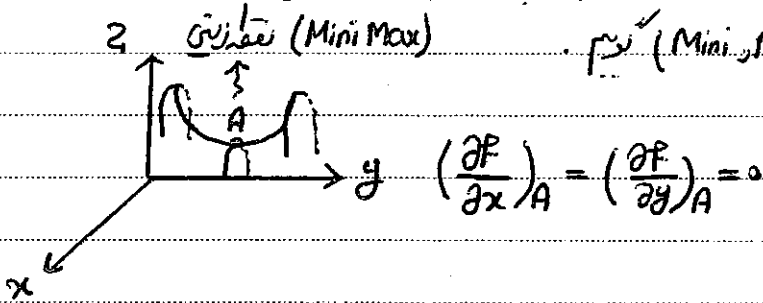 نقطه زینی (Mini Max)
گوییم . (Mini
z
A
y (∂f/∂x)_A = (∂f/∂y)_A = 0
x